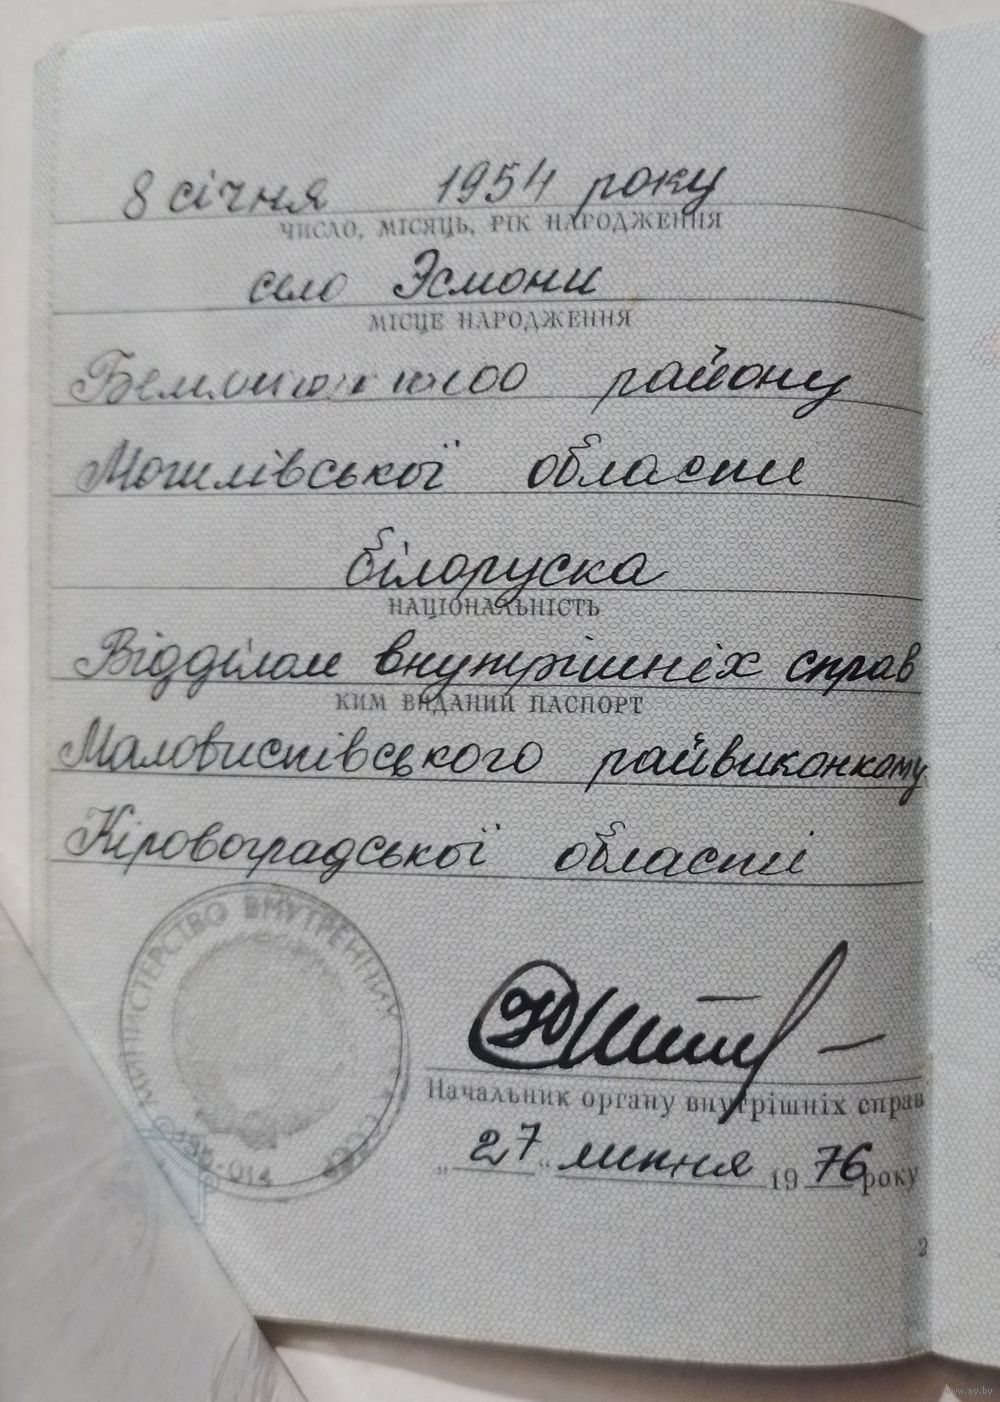 8 січня 1954 року
ЧИСЛО, МІСЯЦЬ, РІК НАРОДЖЕННЯ
село Эсмони
МІСЦЕ НАРОДЖЕННЯ
району
Могилівської области
білоруска
НАЦІОНАЛЬНІСТЬ
Відділом внутрішніх справ
КИМ ВИДАНИЙ ПАСПОРТ
Маловисківського райвиконкому
Кіровоградської області
МИНИСТЕРСТВО ВНУТРЕННИХ
014
Начальник органу внутрішніх справ
„27“ липня 1976 року
2
www.ay.by